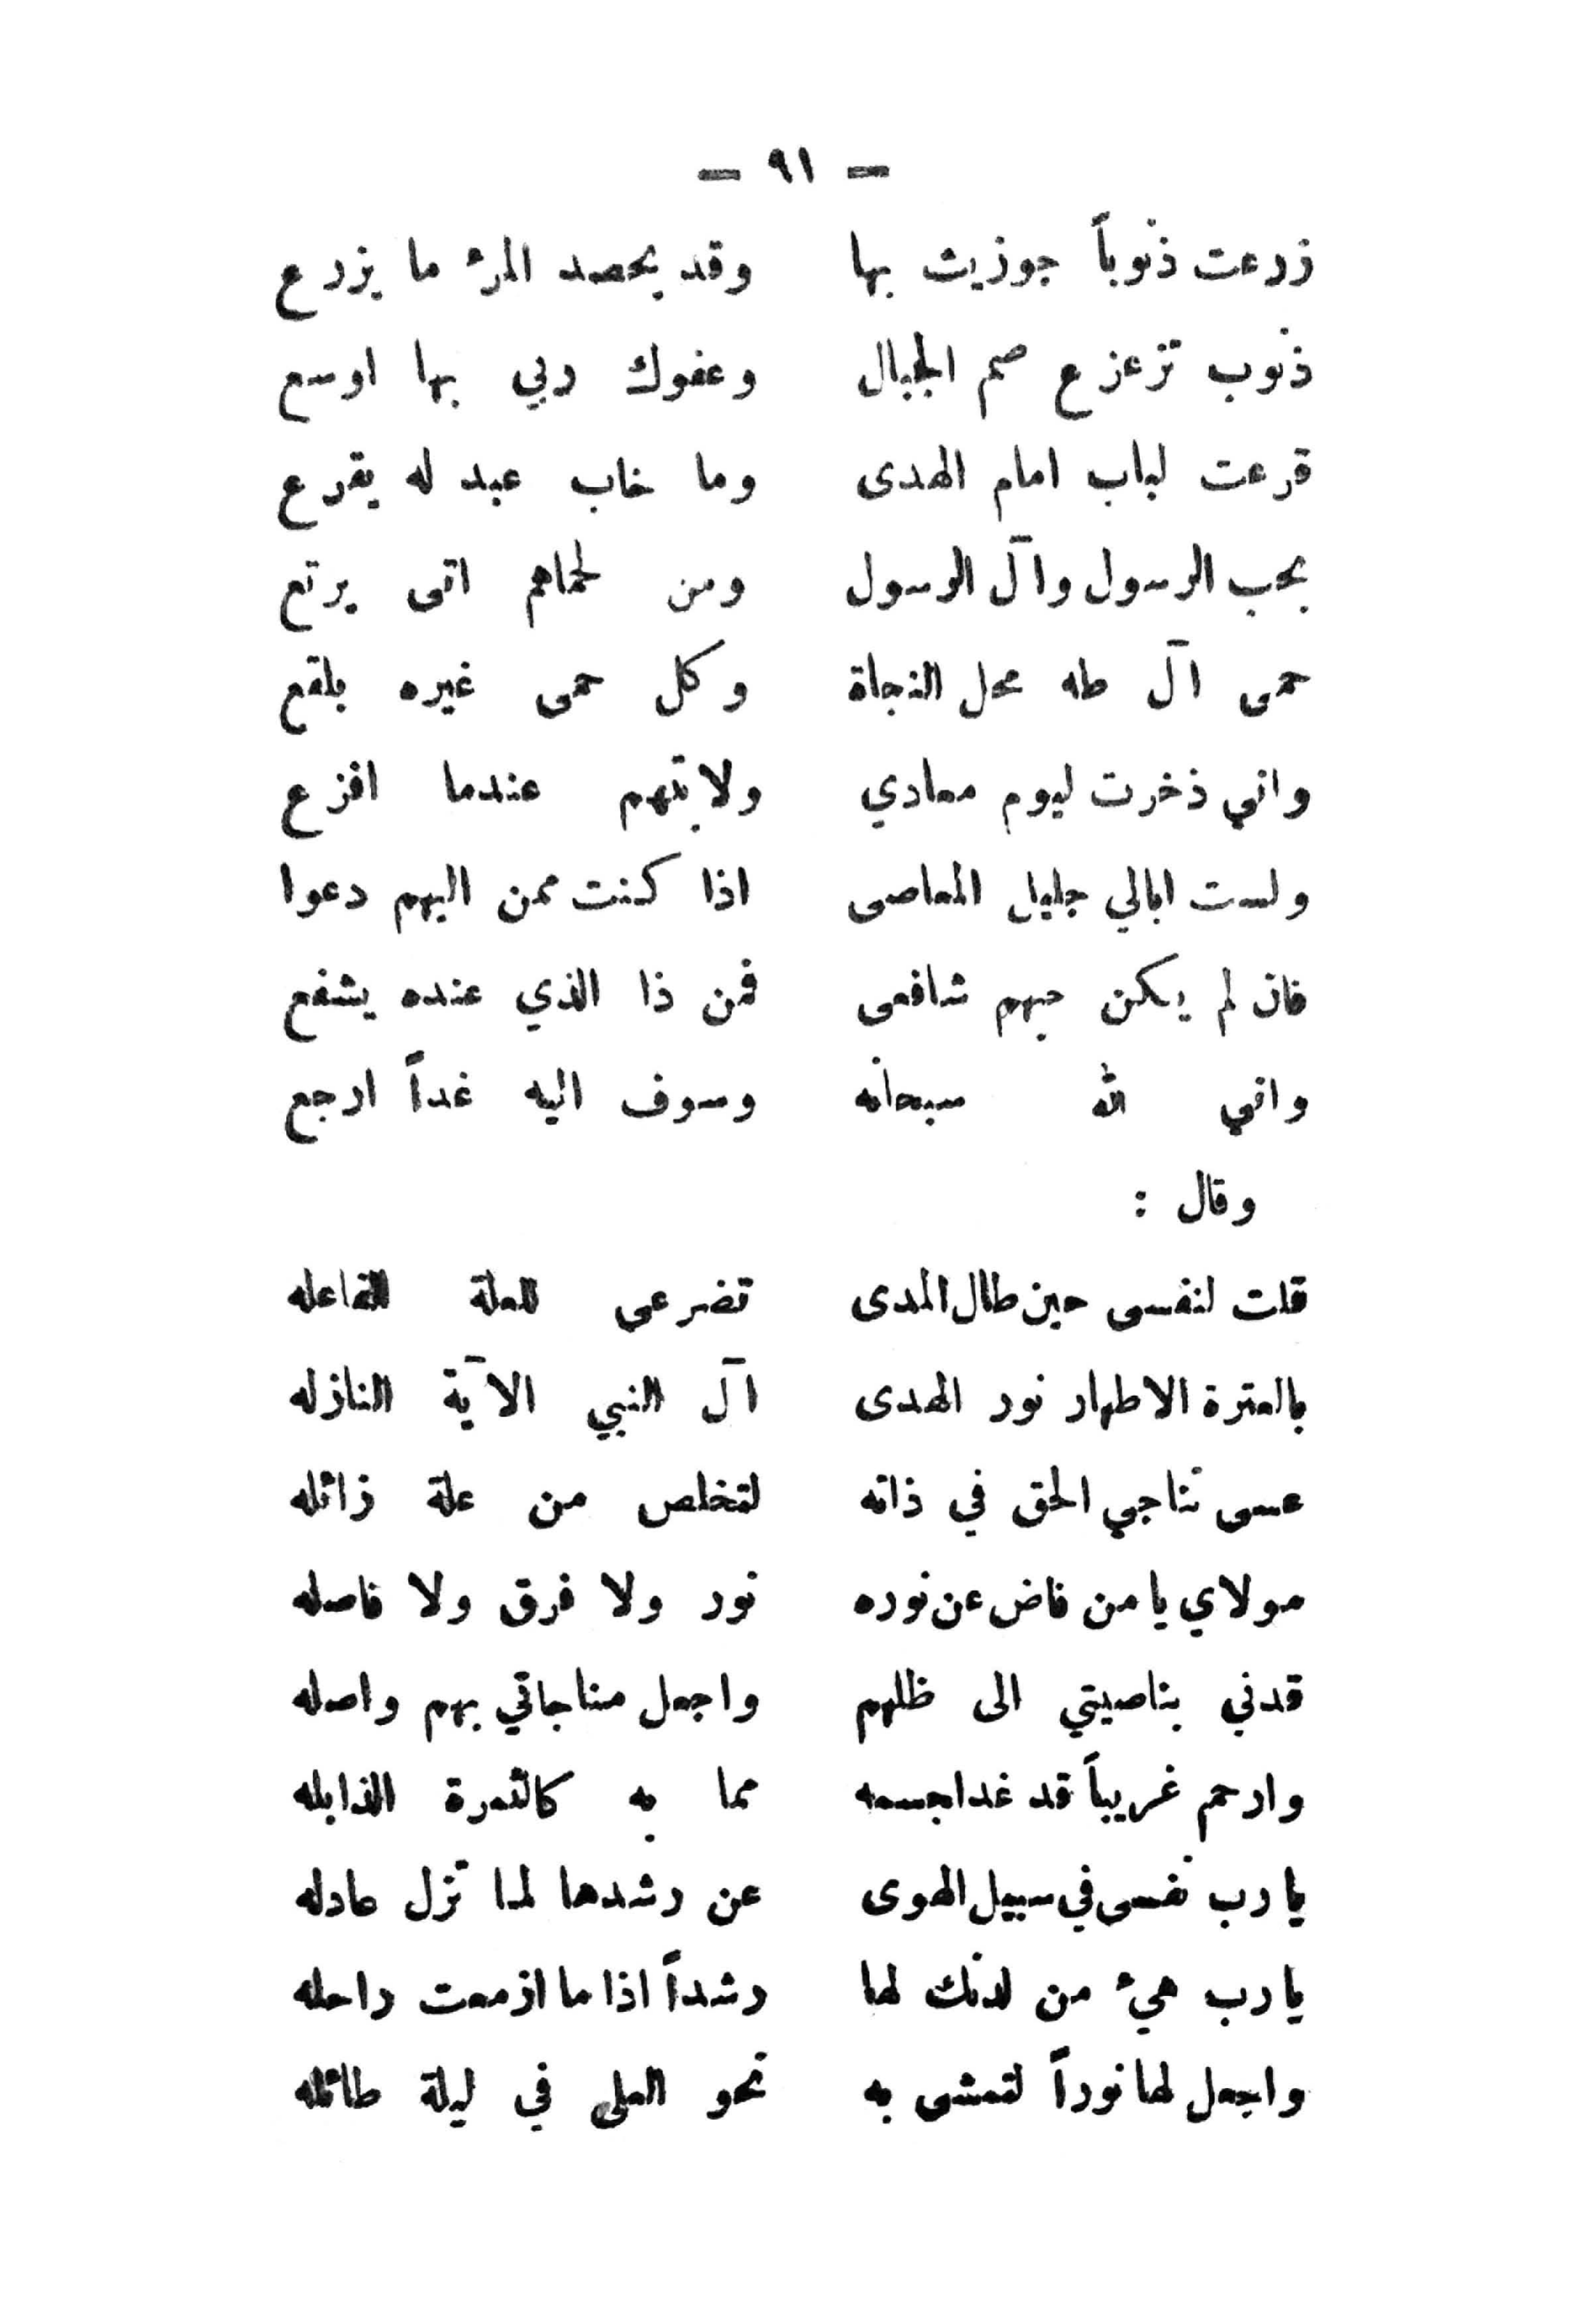 — ٩١ —
زرعت ذنوباً جوزيت بها وقد يحصد المرء ما يزرع
ذنوب تزعزع صم الجبال وعفوك ربي بها اوسع
قرعت لباب امام الهدى وما خاب عبد له يقرع
بحب الرسول وآل الرسول ومن لحماهم اتى يرتع
حمى آل طه محل النجاة وكل حمى غيره بلقع
واني ذخرت ليوم معادي ولايتهم عندما افزع
ولست ابالي جليل المعاصى اذا كنت ممن اليهم دعوا
فان لم يكن حبهم شافعى فمن ذا الذي عنده يشفع
واني لله سبحانه وسوف اليه غداً ارجع
وقال :
قلت لنفسى حين طال المدى تضرعى للعلة الفاعله
بالعترة الاطهار نور الهدى آل النبي الآية النازله
عسى تناجي الحق في ذاته لتخلص من علة زائله
مولاي يا من فاض عن نوره نور ولا فرق ولا فاصله
قدني بناصيتي الى ظلهم واجعل مناجاتي بهم واصله
وارحم غريباً قد غدا جسمه مما به كالثمرة الذابله
يا رب نفسى في سبيل الهوى عن رشدها لما تزل عادله
يا رب هيء من لدنك لها رشداً اذا ما ازمعت راحله
واجعل لها نوراً لتمشى به نحو العلى في ليلة طائله